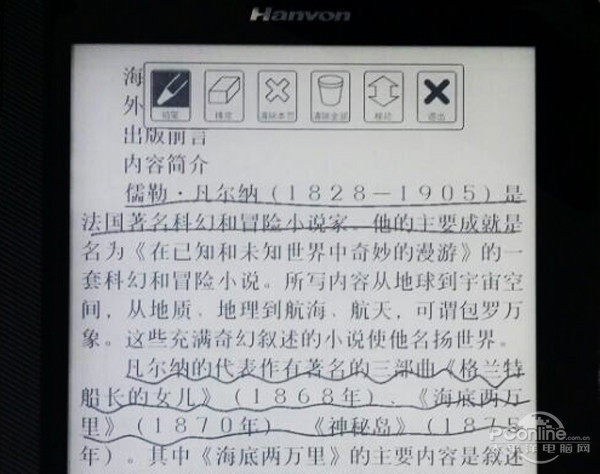 Hanvon
海
铅笔 擦除 清除本页 清除全部 移动 退出
外
出版前言
内容简介
儒勒·凡尔纳（1828－1905）是
法国著名科幻和冒险小说家。他的主要成就是
名为《在已知和未知世界中奇妙的漫游》的一
套科幻和冒险小说。所写内容从地球到宇宙空
间，从地质、地理到航海、航天，可谓包罗万
象。这些充满奇幻叙述的小说使他名扬世界。
凡尔纳的代表作有著名的三部曲《格兰特
船长的女儿》（1868年）、《海底两万
里》（1870年）、《神秘岛》（1875
年）。其中《海底两万里》的主要内容是叙述
PConline.com.cn
太平洋电脑网